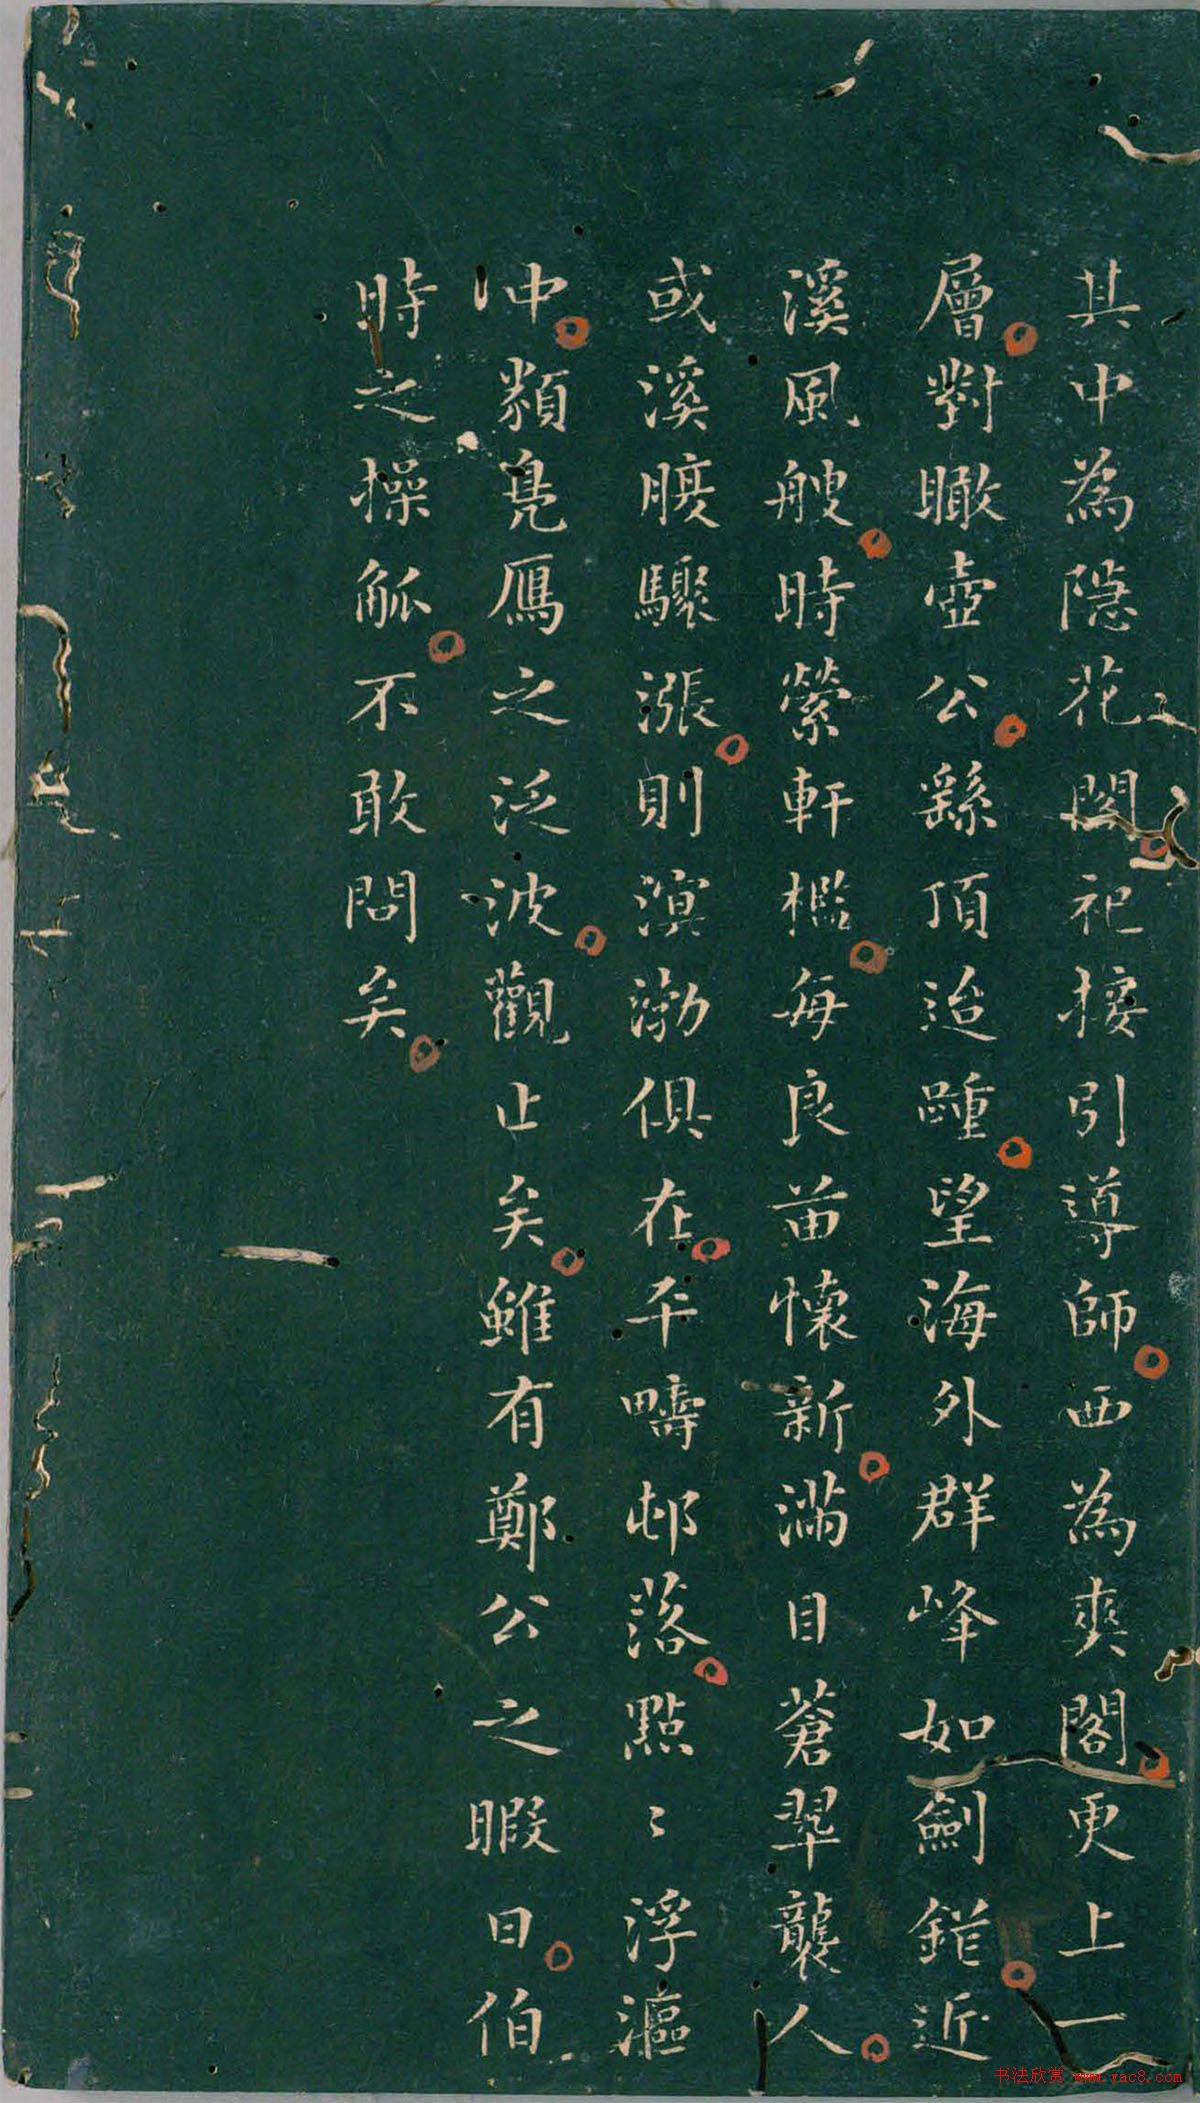 其中為隱花閣祀接引導師西為爽閣更上一
層對瞰壺公繇頂迨踵望海外群峰如劍鎈近
溪風艘時縈軒檻每良苗懷新滿目蒼翠襲人
或溪腠驟漲則溟渤俱在平疇邨落點〻浮漚
中類鳧鴈之泛波觀止矣雖有鄭公之暇日伯
時之操觚不敢問矣
书法欣赏 www.yac8.com